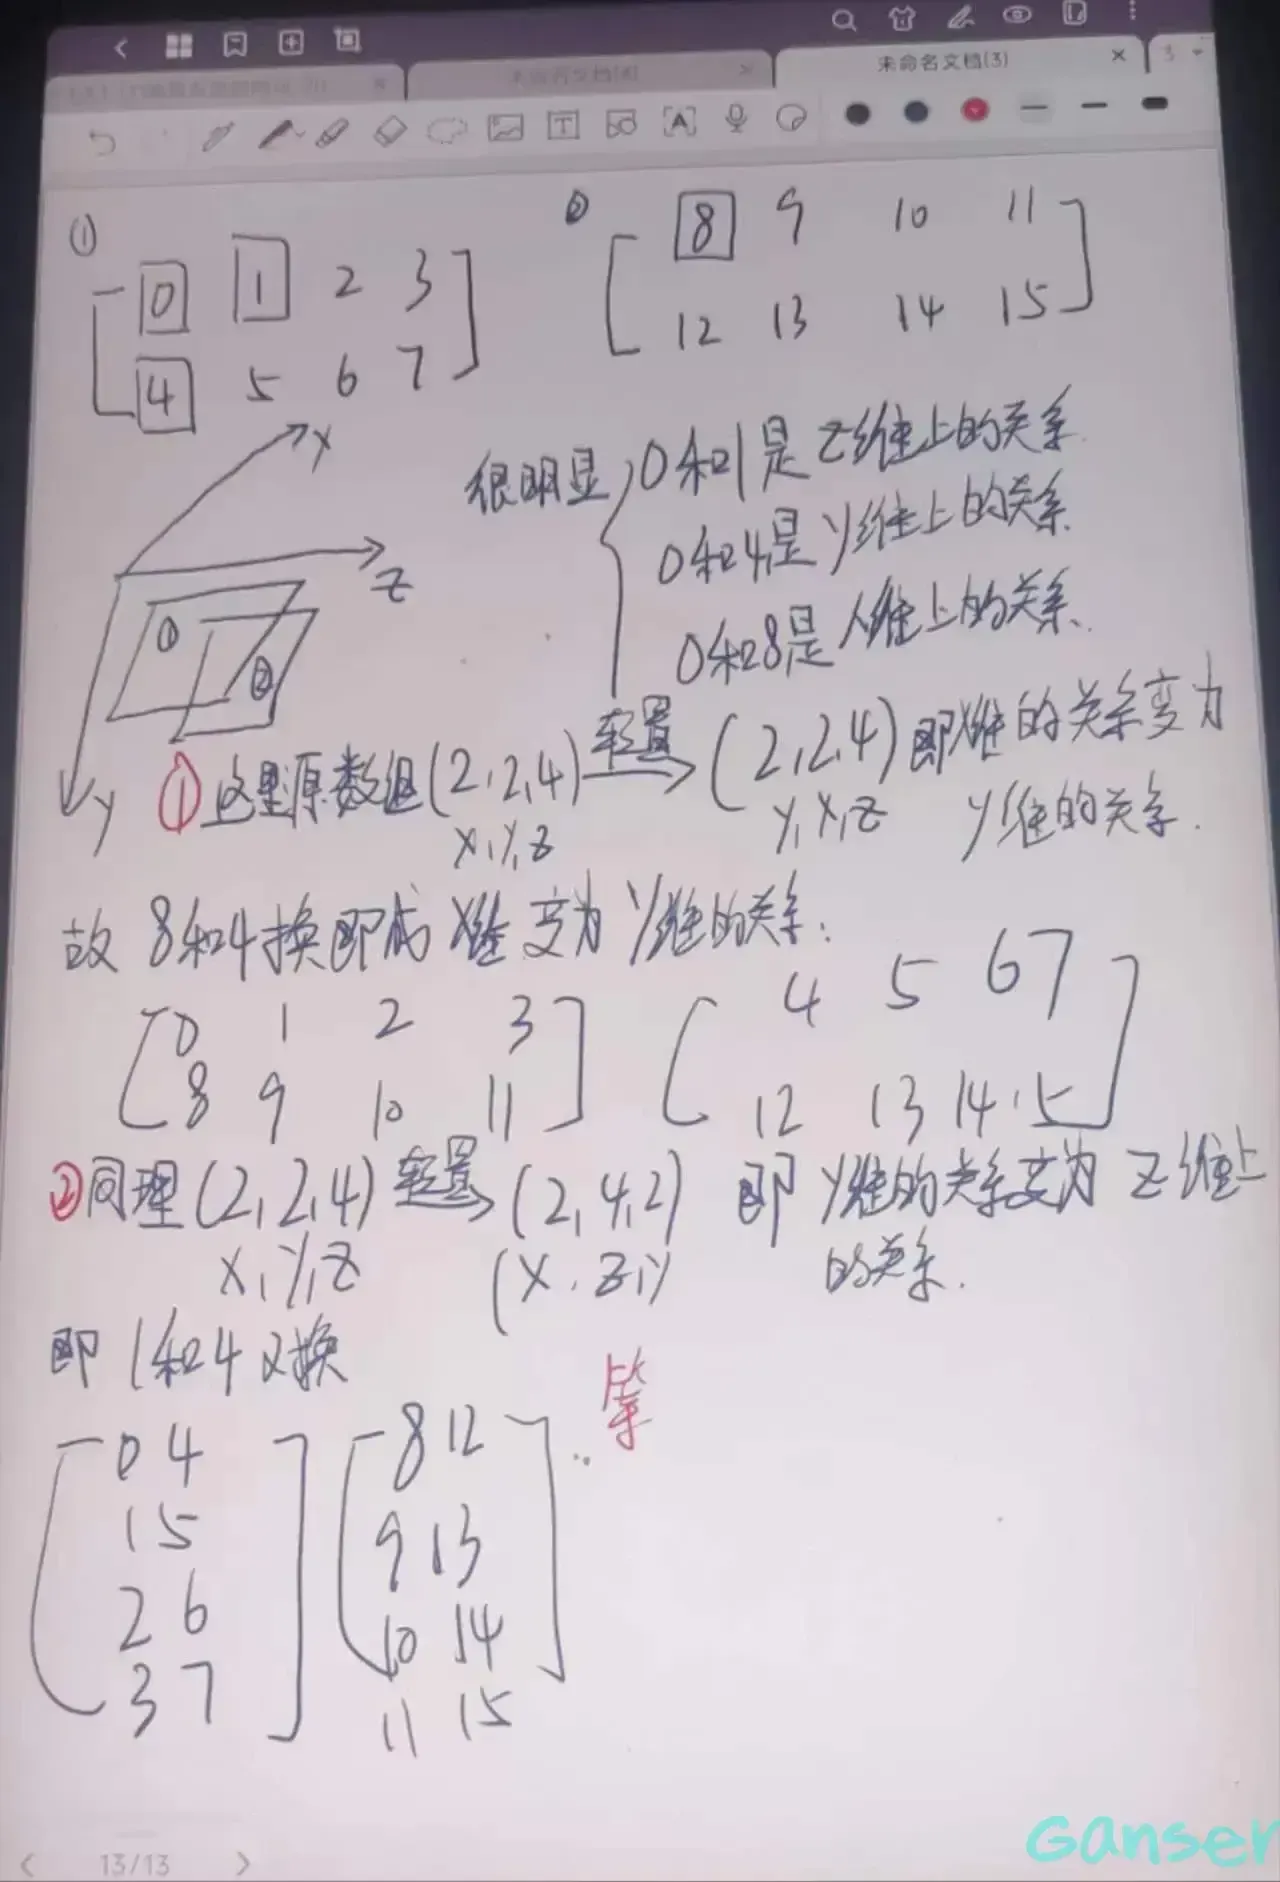 未命名文档(3)
①
0 1 2 3
4 5 6 7
②
8 9 10 11
12 13 14 15
X
Z
Y
①
②
很明显,0和1是Z维上的关系.
0和4是Y维上的关系
0和8是X维上的关系.
①这里源数组(2,2,4) 转置 (2,2,4)即X维的关系变为
X,Y,Z Y,X,Z Y维的关系.
故 8和4换即成 X维 变为 Y维的关系.
0 1 2 3
8 9 10 11
4 5 6 7
12 13 14 15
②同理(2,2,4) 转置 (2,4,2) 即 Y维的关系变为 Z维上
X,Y,Z (X,Z,Y) 的关系.
即 1和4对换
0 4
1 5
2 6
3 7
8 12
9 13
10 14
11 15
..等
13/13
Ganser